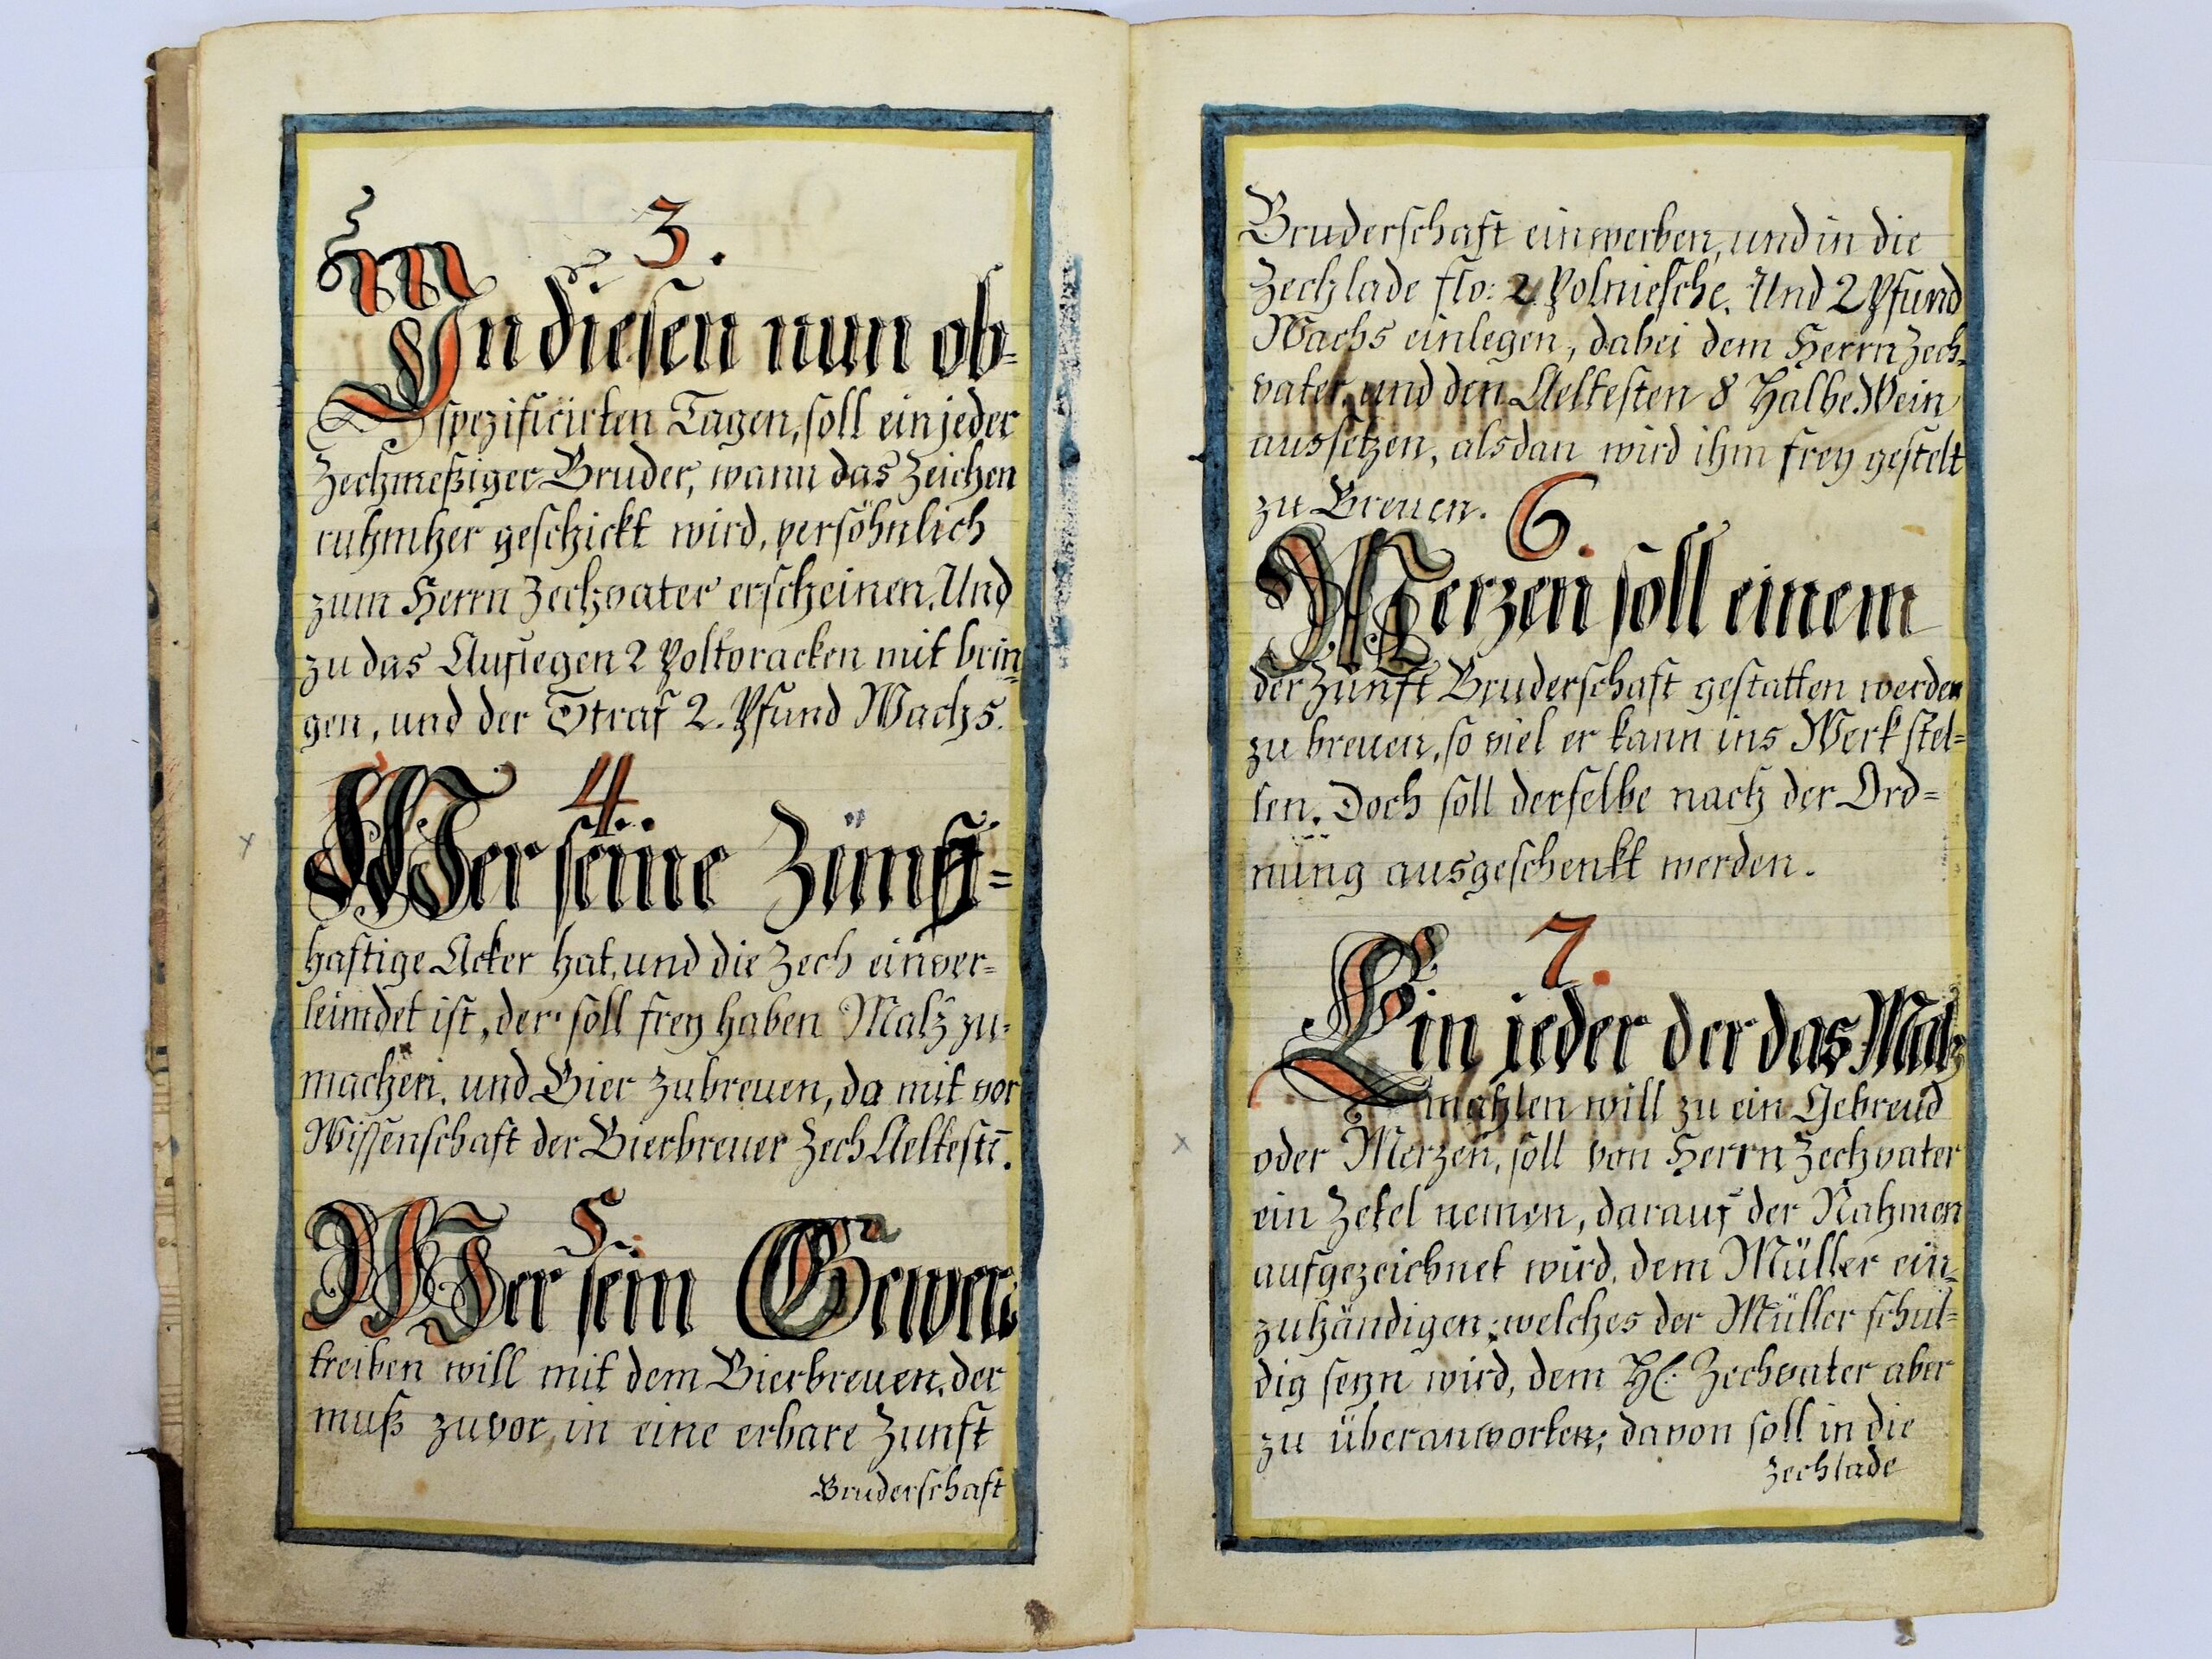 3.
In diesen nun ob-
spezificirten Tagen, soll ein jeder
Zechmeßiger Bruder, wann das Zeichen
ruhmher geschickt wird, persöhnlich
zum Herrn Zechvater erscheinen. Und
zu das Auflegen 2 Poltoracken mit brin=
gen, und der Straf 2. Pfund Wachs.
4.
Wer seine Zünft=
haftige Acker hat, und die Zech einver=
leimdet ist, der soll frey haben Malz zu=
machen, und Bier zubreuen, da mit vor
Wissenschaft der Bierbreuer Zech Aeltestē.
5.
Wer sein Gewerb
treiben will mit dem Bierbreuen, der
muß zuvor in eine erbare Zunft
Bruderschaft
Bruderschaft einwerben, und in die
Zechlade flo: 2 Polniesche. Und 2 Pfund
Wachs einlegen, dabei dem Herrn Zech=
vater, und den Aeltesten 8 Halbe Wein
aussetzen, alsdan wird ihm frey gestelt
zu Breuen.
6.
Merzen soll einem
der Zunft Bruderschaft gestatten werden
zu breuen, so viel er kann ins Werk stel=
len. Doch soll derselbe nach der Ord=
nung ausgeschenkt werden.
7.
Ein jeder der das Malz
mahlen will zu ein Gebreud
oder Merzen, soll von Herrn Zechvater
ein Zetel nemen, darauf der Nahmen
aufgezeichnet wird, dem Müller ein=
zuhändigen; welches der Müller schul=
dig seyn wird, dem H. Zechvater aber
zu überanworten; davon soll in die
Zechlade